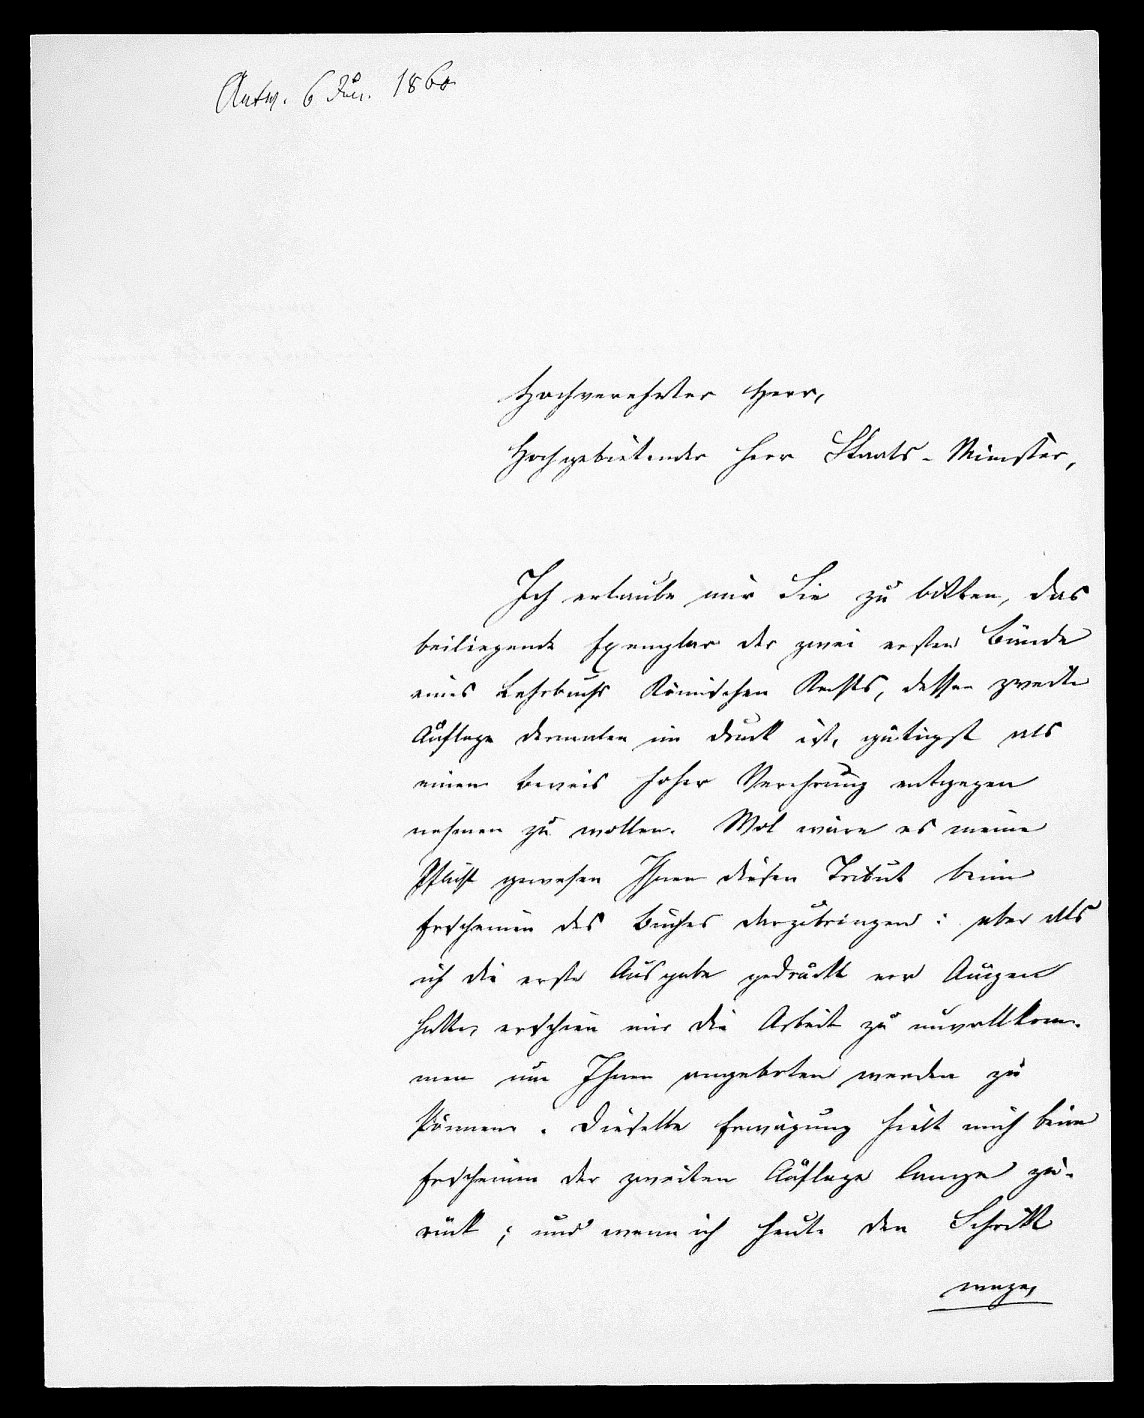 Antw. 6 Jun. 1860
Hochverehrter Herr,
Hochgebietender Herr Staats-Minister,
Ich erlaube mir Sie zu bitten, das
beiliegende Exemplar der zwei ersten Bände
eines Lehrbuchs Römischen Rechts, dessen zweite
Auflage dermalen im Druck ist, gütigst als
einen Beweis hoher Verehrung entgegen
nehmen zu wollen. Wol wäre es meine
Pflicht gewesen Ihnen diesen Tribut beim
Erscheinen des Buches darzubringen: aber als
ich die erste Ausgabe gedruckt vor Augen
hatte, erschien mir die Arbeit zu unvollkom-
men um Ihnen angeboten werden zu
können. Dieselbe Erwägung hielt mich beim
Erscheinen der zweiten Auflage lange zu-
rück; und wenn ich heute den Schritt
wage,